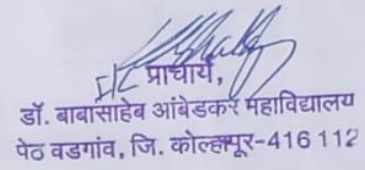 I/C प्राचार्य,
डॉ. बाबासाहेब आंबेडकर महाविद्यालय
पेठ वडगांव, जि. कोल्हापूर-416 112